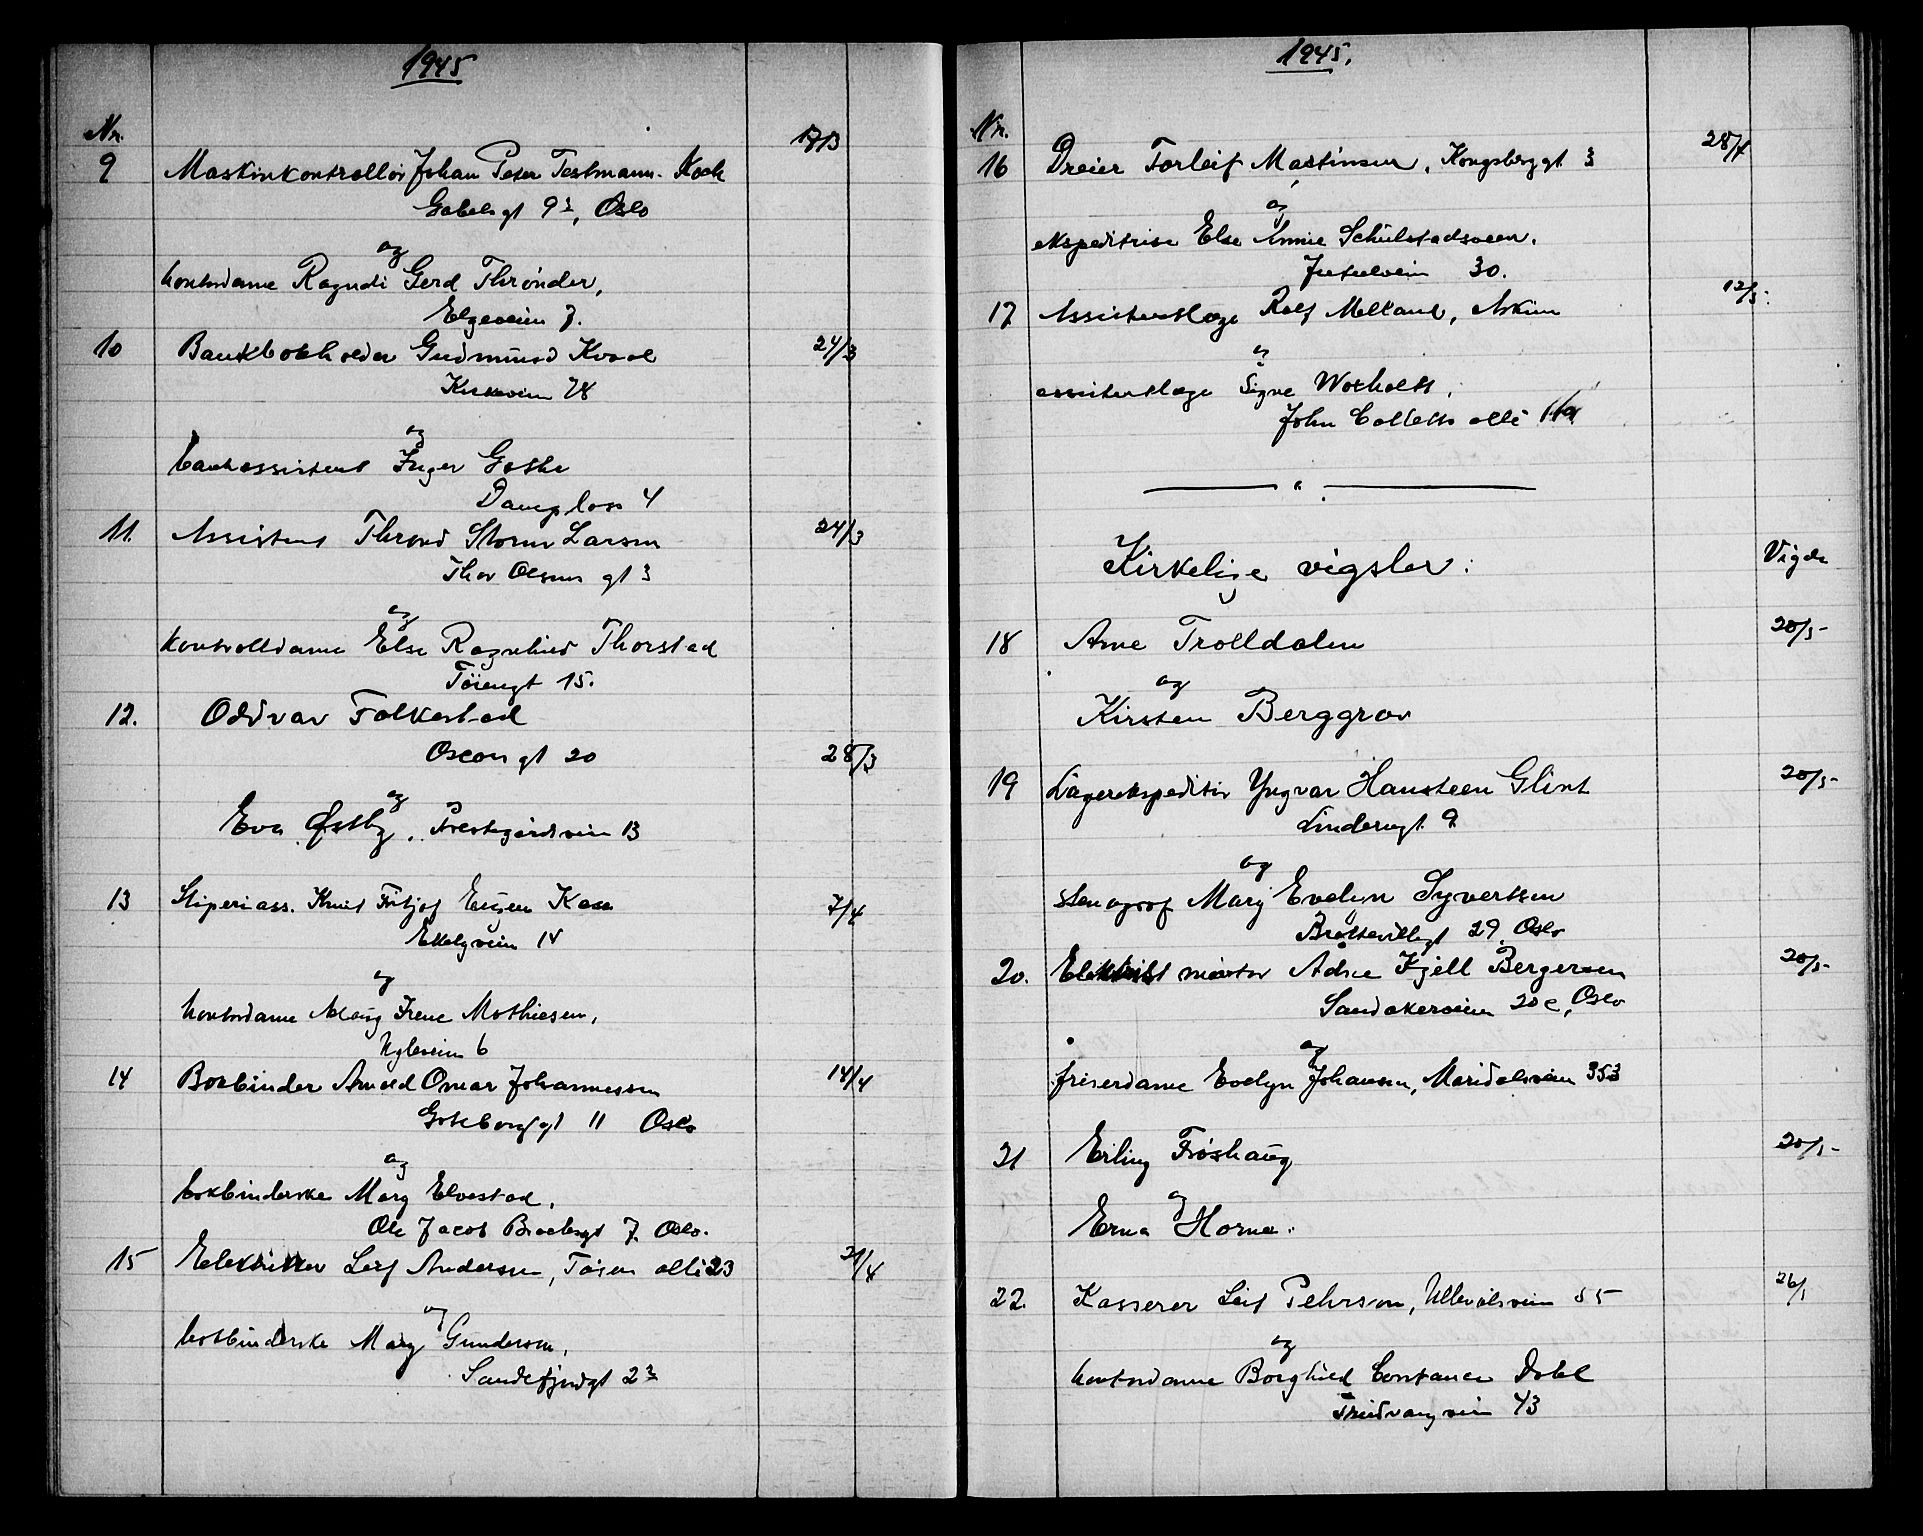 1945
Nr.
17/3
9 Maskinkontrollør Johan Peter Testmann-Koch
Gabelsgt 9, Oslo
og
kontordame Ragndi Gerd Thrønder,
Elgeveien 7.
10 Bankbokholder Gudmund Kvaal 24/3
Kirkeveien 78
og
bankassistent Inger Gothe
Damplass 4
11. Assistent Thrond Storm Larsen 24/3
Thor Olsens gt 3
og
kontrolldame Else Ragnhild Thorstad
Tøiengt 15.
12. Oddvar Folkestad
Oscars gt 20 28/3
og
Eva Østby, Prestegårdsveien 13
13 Stipendiass. Knut Fritjof Eugen 7/4
Ekelyveien 14
og
kontordame Maug Irene Mathiesen,
Ugleveien 6
14 Bokbinder Arnold Omar Johannessen 14/4
Goteborggt 11 Oslo
og
bokbinderske Mary Elvestad,
Ole Jacob Brochsgt 7. Oslo.
15 Elektriker Leif Andersen, Tåsen allé 23 21/4
og
bokbinderske Mary Gundersen,
Sandefjordgt 2
1945.
Nr.
16 Dreier Torleif Martinsen, Kongsberggt 3 28/4
og
ekspeditrise Else Annie Schulstadsveen.
Jutulveien 30.
17 Assistentlæge Rolf Melland, Askim 12/5.
og
assistentlæge Signe Woxholtt,
John Colletts allé 
Kirkelige vigsler: Vigde
18 Arne Trolldalen 20/5
og
Kirsten Berggrav
19 Lagerekspeditør Yngvar Hansteen Glint 20/5
Lindernsgt. 9
og
stenograf Mary Evelyn Syvertsen
Bratsevillegt 29 Oslo
20. Elektrisk montør Adne Kjell Bergersen 20/5
Sandakerveien 20c, Oslo
og
friserdame Evelyn Johansen, Maridalsveien 353
21 Erling Frøshaug 20/5
og
Erna Horne.
22. Kasserer Leif Pehrson, Ullevålsveien 55 26/5
og
kontordame Borghild Constance Dahl
Trudvangveien 43